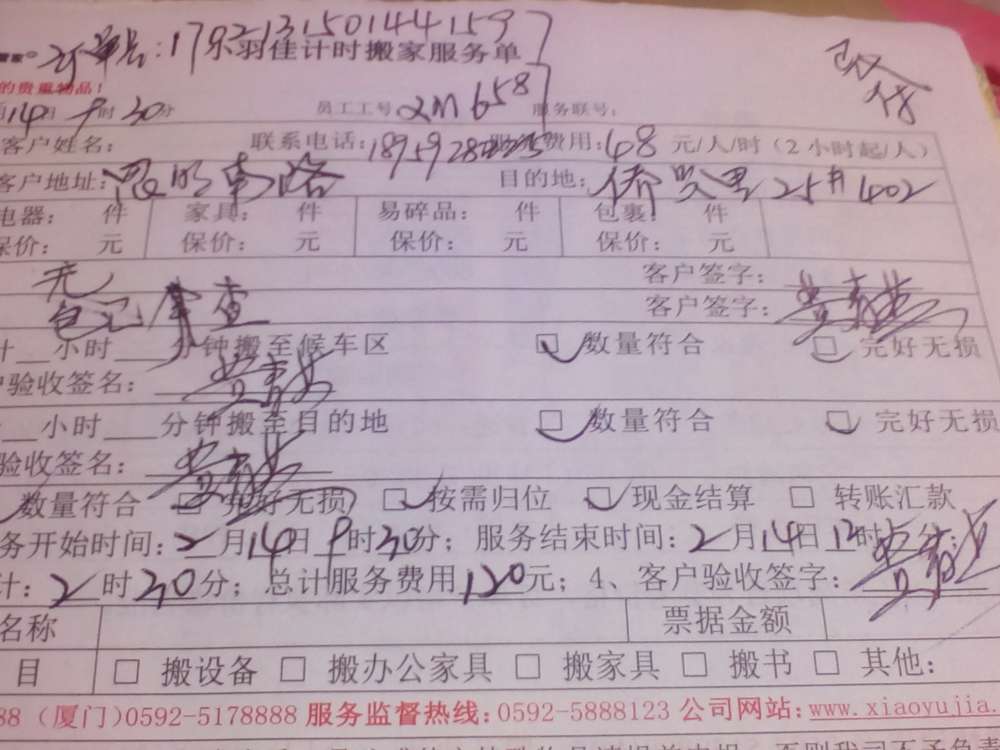 订单号:1702131501441597
羽佳计时搬家服务单
已付
的贵重物品!
14日 9时30分 员工工号 XM658 服务联号:
客户姓名: 联系电话: 费用:48 元/人/时(2小时起/人)
客户地址:思明南路 目的地: 侨兴里25# 402
电器: 件 家具: 件 易碎品: 件 包裹: 件
保价: 元 保价: 元 保价: 元 保价: 元
无 客户签字:
客户签字:
计__小时___分钟搬至候车区 ☑ 数量符合 ☑ 完好无损
验收签名:
__小时___分钟搬至目的地 ☑ 数量符合 ☑ 完好无损
验收签名:
数量符合 ☑ 完好无损 ☑ 按需归位 ☑ 现金结算 □ 转账汇款
务开始时间:2月14日9时30分;服务结束时间:2月14日12时
计:2时30分;总计服务费用120元;4、客户验收签字:
名称 票据金额
目 □ 搬设备 □ 搬办公家具 □ 搬家具 □ 搬书 □ 其他:
88 (厦门)0592-5178888 服务监督热线:0592-5888123 公司网站:www.xiaoyujia.